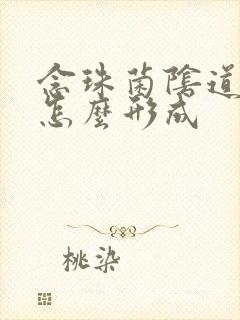 念珠菌陰道
怎麼形成
桃染